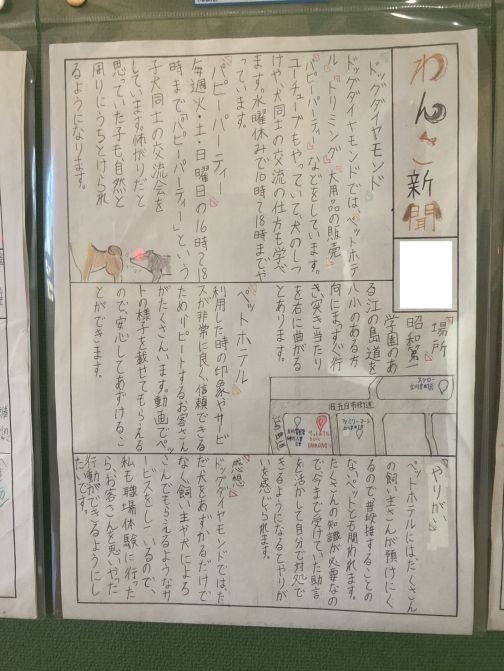 わんこ新聞
ドッグダイヤモンド
ドッグダイヤモンドでは、ペットホテ
ル、トリミング、犬用品の販売、
パピーパーティーなどをしています。
ユーチューブもやっていて、犬のしつ
けや、犬同士の交流の仕方も学べ
ます。水曜休みで10時〜18時までや
っています。
パピーパーティー
毎週火・土・日曜日の16時〜18
時まで。「パピーパーティー」という
子犬同士の交流会を
しています。怖がりだと
思っていた子も自然と
周りにうちとけられ
るようになります。
場所
昭和第一
学園のあ
る江の島道を
八小のある方
向にまっすぐ行
き突き当たり
を右に曲がる
とあります。
旧五日市街道
ペットホテル
利用した時の印象やサービ
スが非常に良く、信頼できる
ためリピートするお客さん
がたくさんいます。動画でペッ
トの様子を載せてもらえる
ので、安心してあずけるこ
とができます。
やりがい
ペットホテルにはたくさん
の飼い主さんが預けにく
るので普段接することの
ないペットとも関われます。
たくさんの知識が必要なの
で今まで受けていた助言
を活かして自分で対処で
きるようになるとやりが
いを感じられます。
感想
ドッグダイヤモンドでは、た
だ犬をあずかるだけで
なく、飼い主や犬によろ
こんでもらえるようなサ
ービスをしているので、
私も職場体験に行った
ら、お客さんを思いやった
行動ができるようにし
たいです。